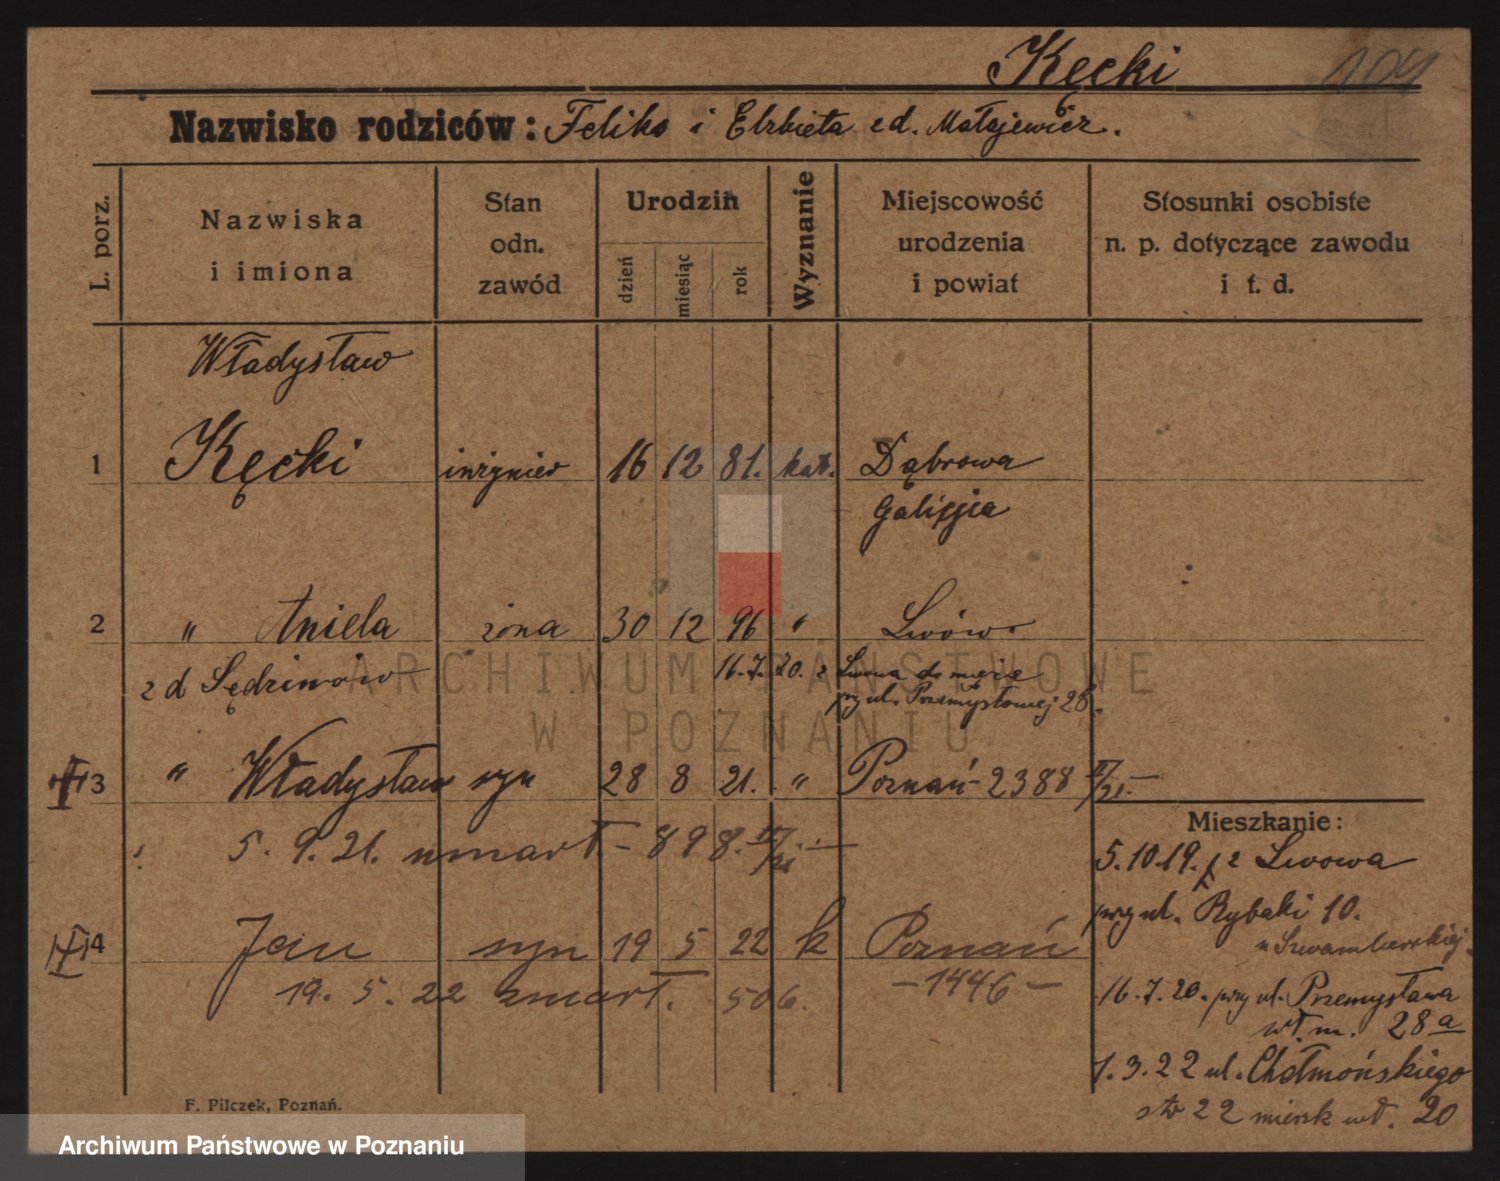 Kęcki 104
Nazwisko rodziców: Feliks i Elżbieta z d. Małajewicz.
L. porz.
Nazwiska
i imiona
Stan
odn.
zawód
Urodzin
dzień
miesiąc
rok
Wyznanie
Miejscowość
urodzenia
i powiat
Stosunki osobiste
n. p. dotyczące zawodu
i t. d.
Władysław
1 Kęcki inżynier 16 12 81. kat. Dąbrowa
Galicja
2 " Aniela żona 30 12 96 " Lwów
z d Sędzimów 16.7.20. z Lwowa do męża
przy ul. Przemysłowej 28.
3 " Władysław syn 28 8 21. " Poznań - 2388 II/21. -
5. 9. 21. umarł - 898. II/21. -
4 Jan syn 19 5 22 k Poznań
19. 5. 22 zmarł. 506. - 1446 -
Mieszkanie:
5.10.19. z Lwowa
przy ul. Rybaki 10.
u Szwamberskiej.
16.7.20. przy ul. Przemysława
wł. m. 28a
1.3.22 ul. Chełmońskiego
str 22 mieszk wł. 20
F. Pilczek, Poznań.
ARCHIWUM PAŃSTWOWE
W POZNANIU
Archiwum Państwowe w Poznaniu